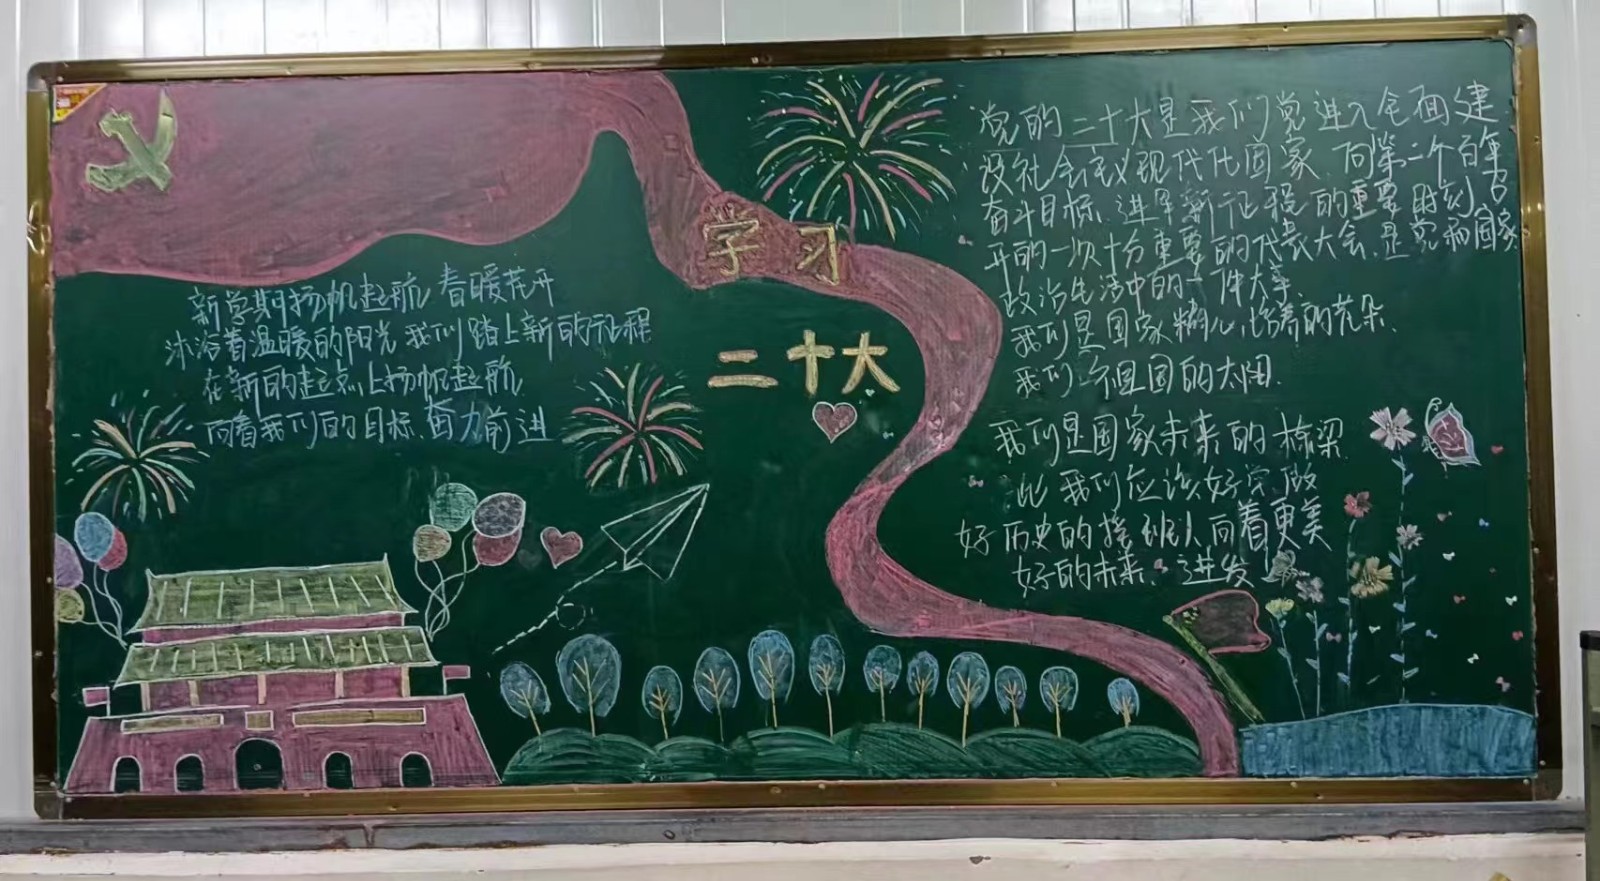 学习
二十大
新学期扬帆起航 春暖花开
沐浴着温暖的阳光 我们踏上新的征程
在新的起点上扬帆起航
向着我们的目标、奋力前进
党的二十大是我们党进入全面建
设社会主义现代化国家、向第二个百年
奋斗目标、进军新征程的重要时刻、召
开的一次十分重要的代表大会、是党和国家
政治生活中的一件大事
我们是国家精心培养的花朵、
我们 祖国的太阳.
我们是国家未来的栋梁
此 我们应该好党、做
好历史的接班人向着更美
好的未来、进发!